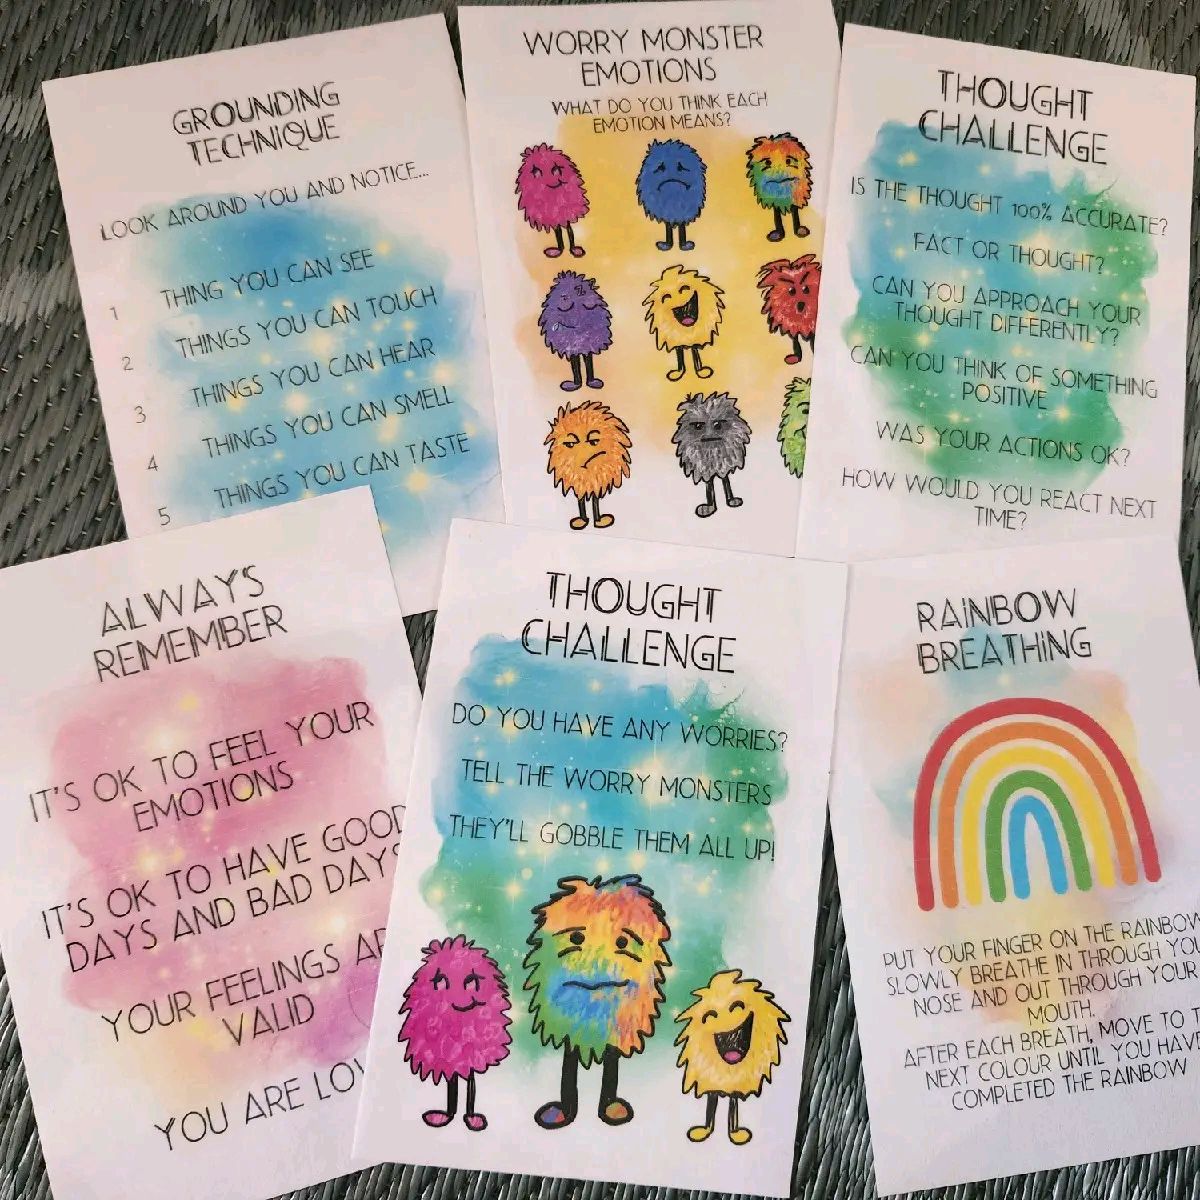 GROUNDING
TECHNIQUE
LOOK AROUND YOU AND NOTICE...
1 THING YOU CAN SEE
2 THINGS YOU CAN TOUCH
3 THINGS YOU CAN HEAR
4 THINGS YOU CAN SMELL
5 THINGS YOU CAN TASTE
WORRY MONSTER
EMOTIONS
WHAT DO YOU THINK EACH
EMOTION MEANS?
THOUGHT
CHALLENGE
IS THE THOUGHT 100% ACCURATE?
FACT OR THOUGHT?
CAN YOU APPROACH YOUR
THOUGHT DIFFERENTLY?
CAN YOU THINK OF SOMETHING
POSITIVE
WAS YOUR ACTIONS OK?
HOW WOULD YOU REACT NEXT
TIME?
ALWAYS
REMEMBER
IT'S OK TO FEEL YOUR
EMOTIONS
IT'S OK TO HAVE GOOD
DAYS AND BAD DAYS
YOUR FEELINGS
VALID
YOU ARE
THOUGHT
CHALLENGE
DO YOU HAVE ANY WORRIES?
TELL THE WORRY MONSTERS
THEY'LL GOBBLE THEM ALL UP!
RAINBOW
BREATHING
PUT YOUR FINGER ON THE RAINBOW
SLOWLY BREATHE IN THROUGH
NOSE AND OUT THROUGH YOUR
MOUTH.
AFTER EACH BREATH, MOVE TO
NEXT COLOUR UNTIL YOU HAVE
COMPLETED THE RAINBOW